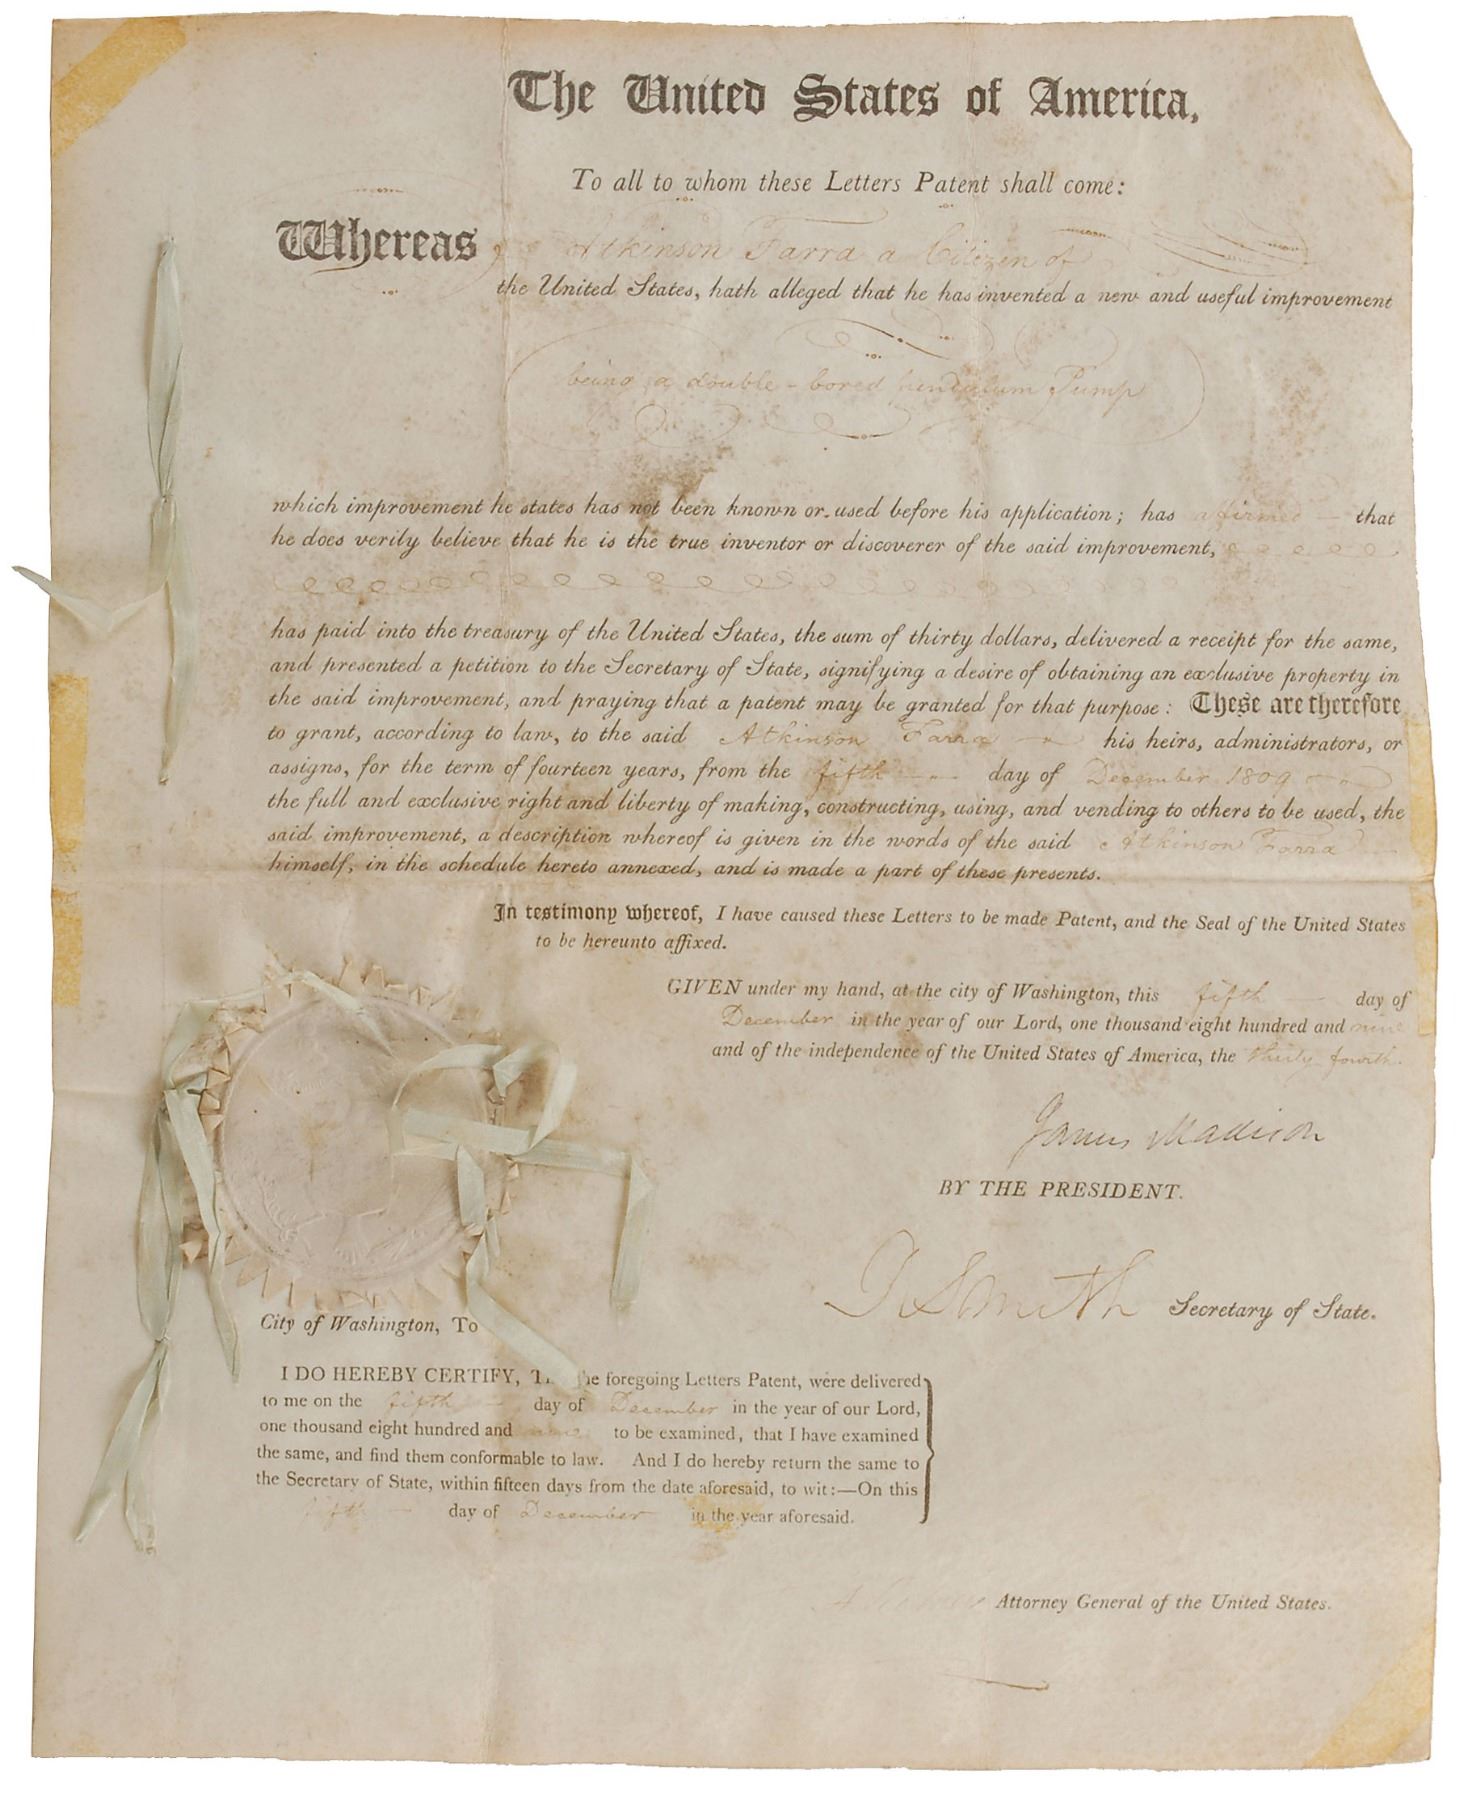 The United States of America,
To all to whom these Letters Patent shall come:
Whereas Atkinson Farra a Citizen of
the United States, hath alleged that he has invented a new and useful improvement
being a double-bored pendulum Pump
which improvement he states has not been known or used before his application; has affirmed — that
he does verily believe that he is the true inventor or discoverer of the said improvement,
has paid into the treasury of the United States, the sum of thirty dollars, delivered a receipt for the same,
and presented a petition to the Secretary of State, signifying a desire of obtaining an exclusive property in
the said improvement, and praying that a patent may be granted for that purpose: These are therefore
to grant, according to law, to the said Atkinson Farra his heirs, administrators, or
assigns, for the term of fourteen years, from the fifth day of December 1809
the full and exclusive right and liberty of making, constructing, using, and vending to others to be used, the
said improvement, a description whereof is given in the words of the said Atkinson Farra
himself, in the schedule hereto annexed, and is made a part of these presents.
In testimony whereof, I have caused these Letters to be made Patent, and the Seal of the United States
to be hereunto affixed.
GIVEN under my hand, at the city of Washington, this fifth — day of
December in the year of our Lord, one thousand eight hundred and nine
and of the independence of the United States of America, the thirty fourth.
James Madison
BY THE PRESIDENT.
R Smith Secretary of State.
City of Washington, To
I DO HEREBY CERTIFY, foregoing Letters Patent, were delivered
to me on the fifth — day of December in the year of our Lord,
one thousand eight hundred and nine to be examined, that I have examined
the same, and find them conformable to law. And I do hereby return the same to
the Secretary of State, within fifteen days from the date aforesaid, to wit:—On this
fifth — day of December in the year aforesaid.
Attorney General of the United States.